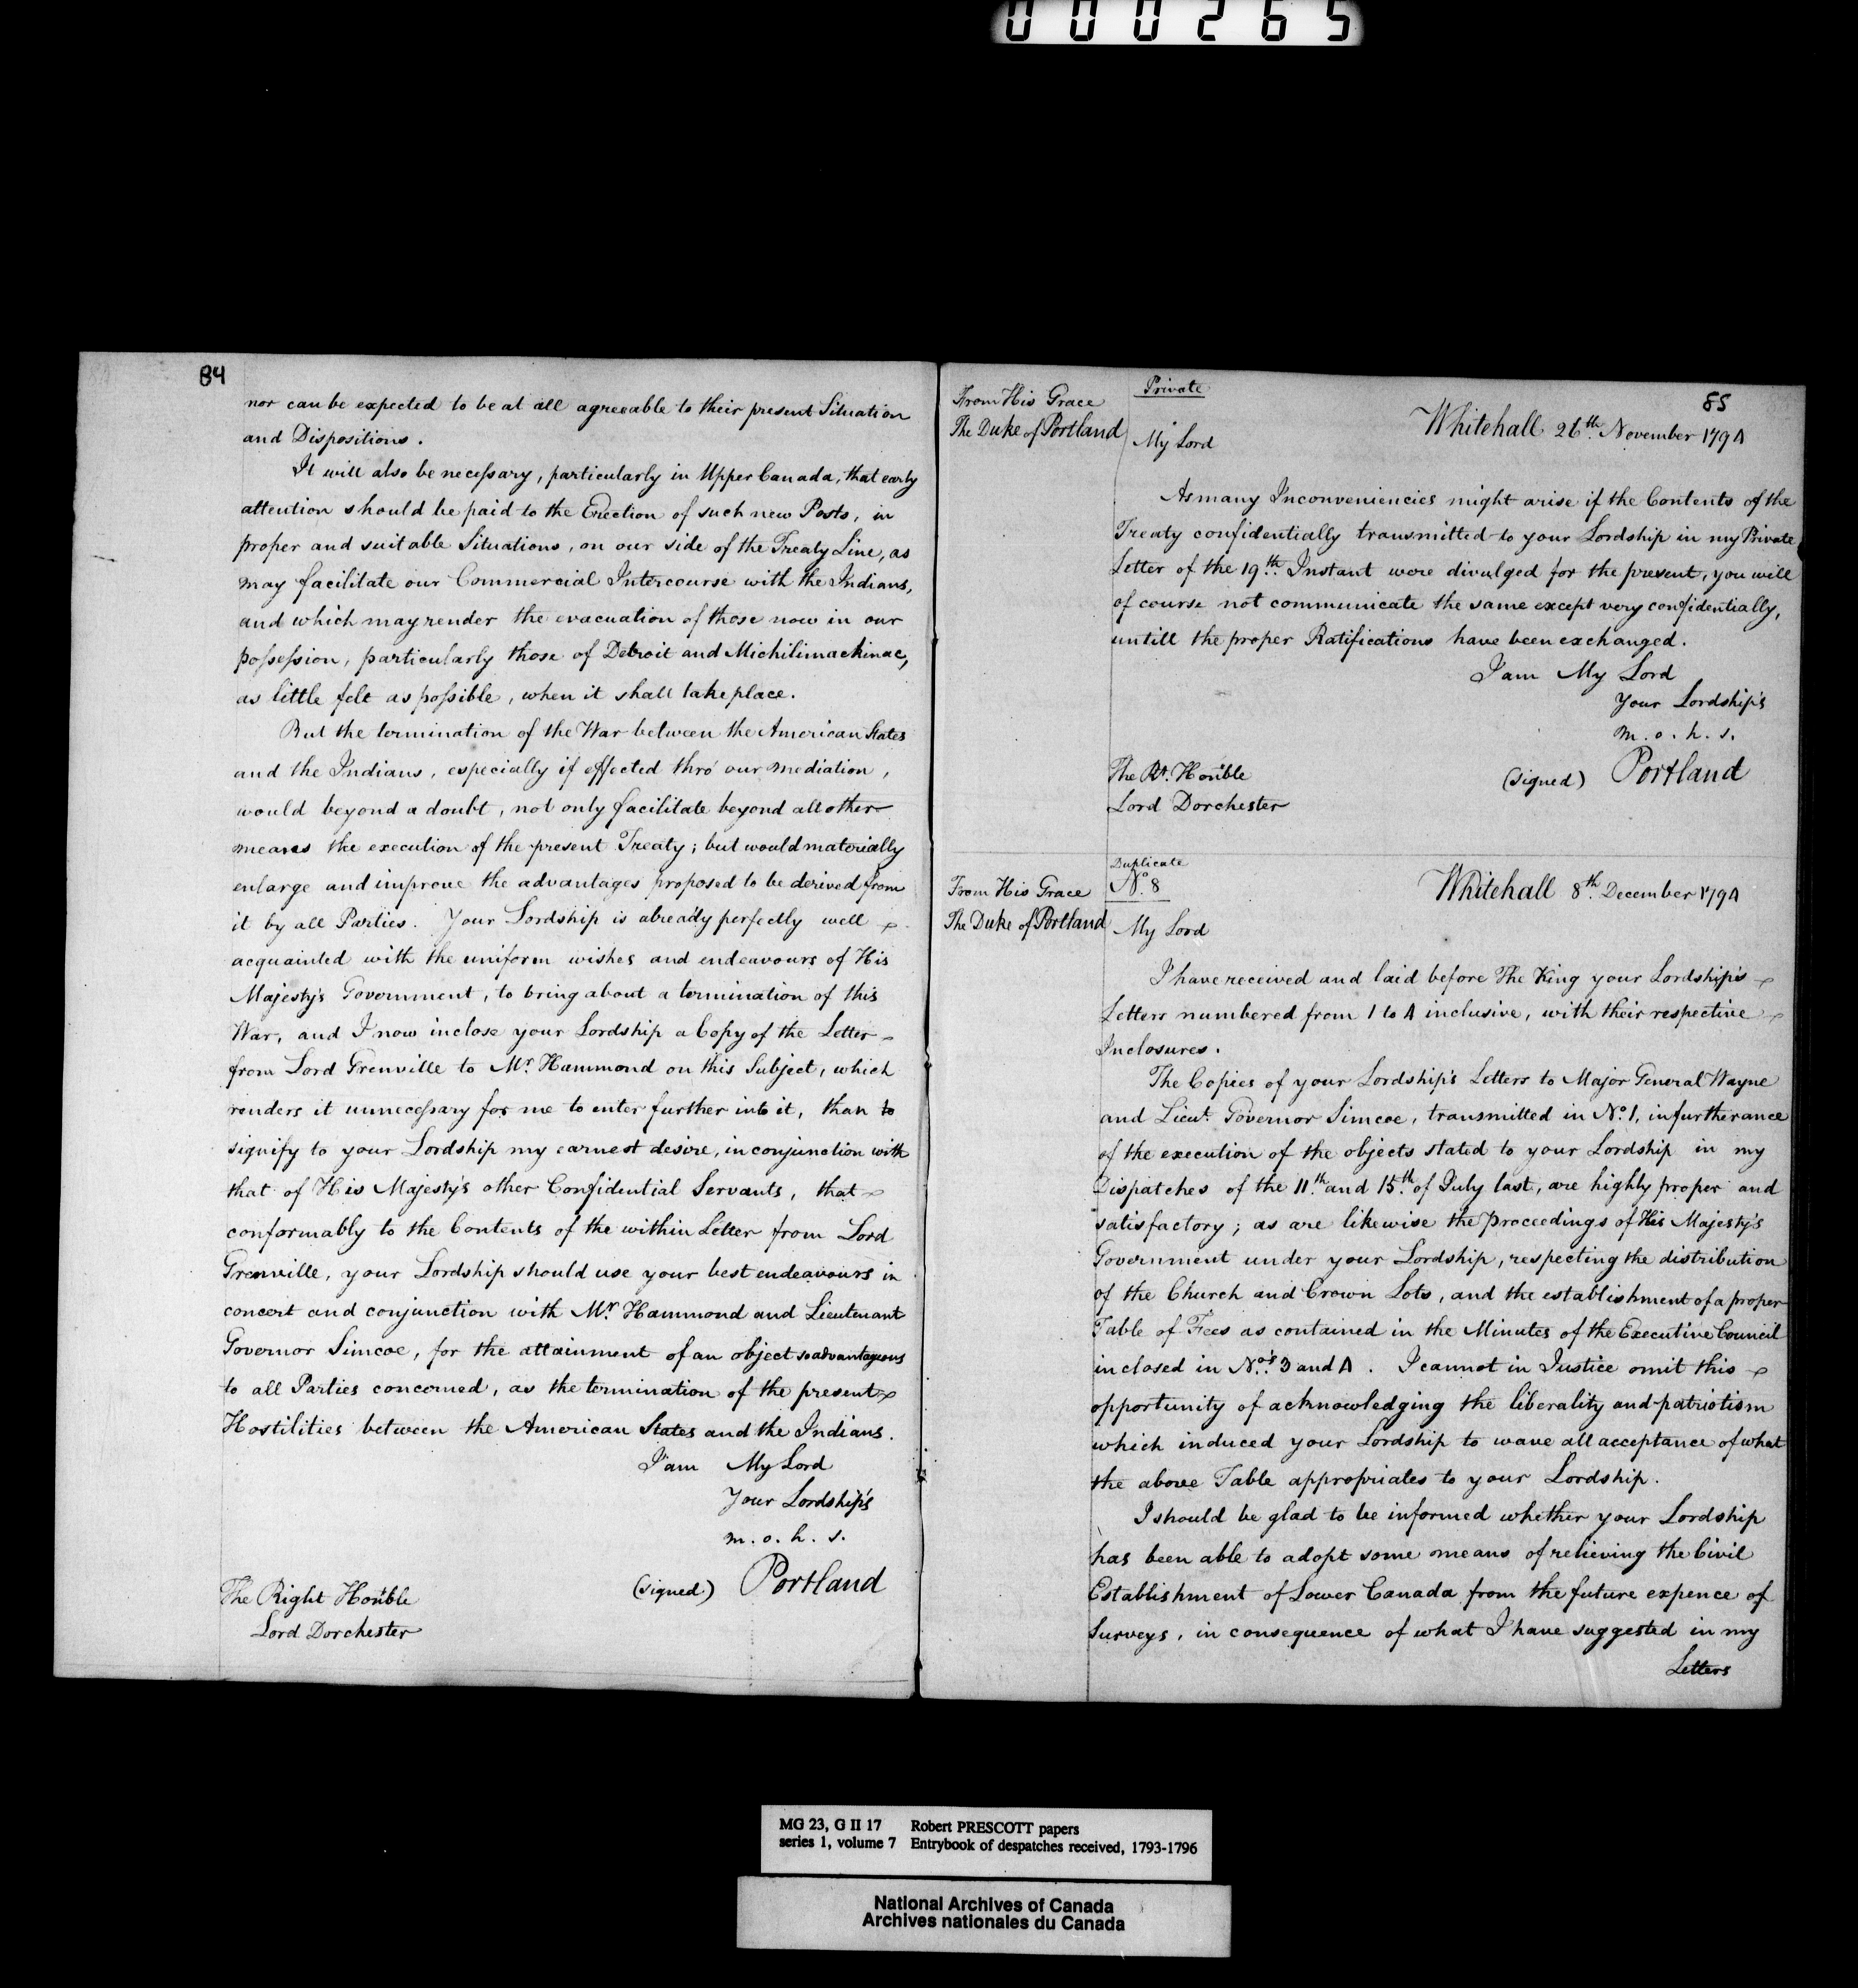 000265
84
nor can be expected to be at all agreeable to their present Situation
and Dispositions.
It will also be necessary, particularly in Upper Canada, that early
attention should be paid to the Erection of such new Posts, in
proper and suitable Situations, on our side of the Treaty Line, as
may facilitate our Commercial Intercourse with the Indians,
and which may render the evacuation of those now in our
possession, particularly those of Detroit and Michilimackinac,
as little felt as possible, when it shall take place.
But the termination of the War between the American States
and the Indians, especially if effected thro' our mediation,
would beyond a doubt, not only facilitate beyond all other
means the execution of the present Treaty; but would materially
enlarge and improve the advantages proposed to be derived from
it by all Parties. Your Lordship is already perfectly well
acquainted with the uniform wishes and endeavours of His
Majesty's Government, to bring about a termination of this
War, and I now inclose your Lordship a Copy of the Letter
from Lord Grenville to Mr. Hammond on this Subject, which
renders it unnecessary for me to enter further into it, than to
signify to your Lordship my earnest desire, in conjunction with
that of His Majesty's other Confidential Servants, that
conformably to the Contents of the within Letter from Lord
Grenville, your Lordship should use your best endeavours in
concert and conjunction with Mr. Hammond and Lieutenant
Governor Simcoe, for the attainment of an object so advantageous
to all Parties concerned, as the termination of the present
Hostilities between the American States and the Indians.
I am My Lord
Your Lordship's
m. o. h. s.
(signed) Portland
The Right Honble
Lord Dorchester
85
From His Grace
The Duke of Portland
Private
Whitehall 26th. November 1794
My Lord
As many Inconveniencies might arise if the Contents of the
Treaty confidentially transmitted to your Lordship in my Private
Letter of the 19th. Instant were divulged for the present, you will
of course not communicate the same except very confidentially,
untill the proper Ratifications have been exchanged.
I am My Lord
Your Lordship's
m. o. h. s.
(signed) Portland
The Rt. Honble
Lord Dorchester
From His Grace
The Duke of Portland
Duplicate
No. 8
Whitehall 8th. December 1794
My Lord
I have received and laid before The King your Lordship's
Letters numbered from 1 to 4 inclusive, with their respective
Inclosures.
The Copies of your Lordship's Letters to Major General Wayne
and Lieut. Governor Simcoe, transmitted in No. 1, in furtherance
of the execution of the objects stated to your Lordship in my
Dispatches of the 11th. and 15th. of July last, are highly proper and
satisfactory; as are likewise the proceedings of His Majesty's
Government under your Lordship, respecting the distribution
of the Church and Crown Lots, and the establishment of a proper
Table of Fees as contained in the Minutes of the Executive Council
inclosed in Nos. 3 and 4. I cannot in Justice omit this
opportunity of acknowledging the liberality and patriotism
which induced your Lordship to wave all acceptance of what
the above Table appropriates to your Lordship.
I should be glad to be informed whether your Lordship
has been able to adopt some means of relieving the Civil
Establishment of Lower Canada from the future expence of
Surveys, in consequence of what I have suggested in my
Letters
MG 23, G II 17 Robert PRESCOTT papers
series 1, volume 7 Entrybook of despatches received, 1793-1796
National Archives of Canada
Archives nationales du Canada